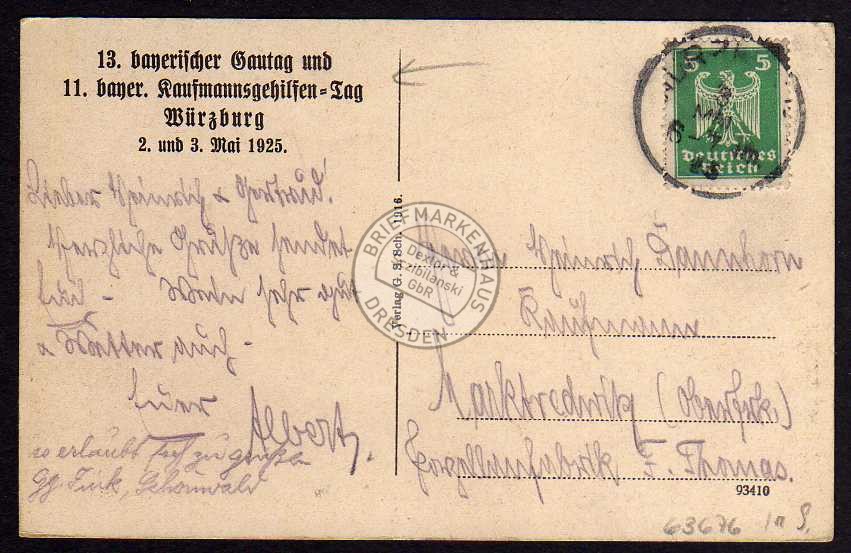 13. bayerischer Gautag und
11. bayer. Kaufmannsgehilfen-Tag
Würzburg
2. und 3. Mai 1925.
Lieber Heinrich & Gertraud.
Herzliche Grüße sendet
Euch - Wein sehr gut
u Wetter auch -
Euer
Albert.
so erlaubt sich zu grüßen
Gg. Fick, Schönwald
Verlag G. S. Sch. 1916.
5 5
Deutsches
Reich
3
MAI
BRIEFMARKENHAUS
Dexler &
zibilanski
GbR
DRESDEN
Herrn Heinrich
Kaufmann
Marktredwitz (Oberfrk.)
Porzellanfabrik F. Thomas.
93410
63676